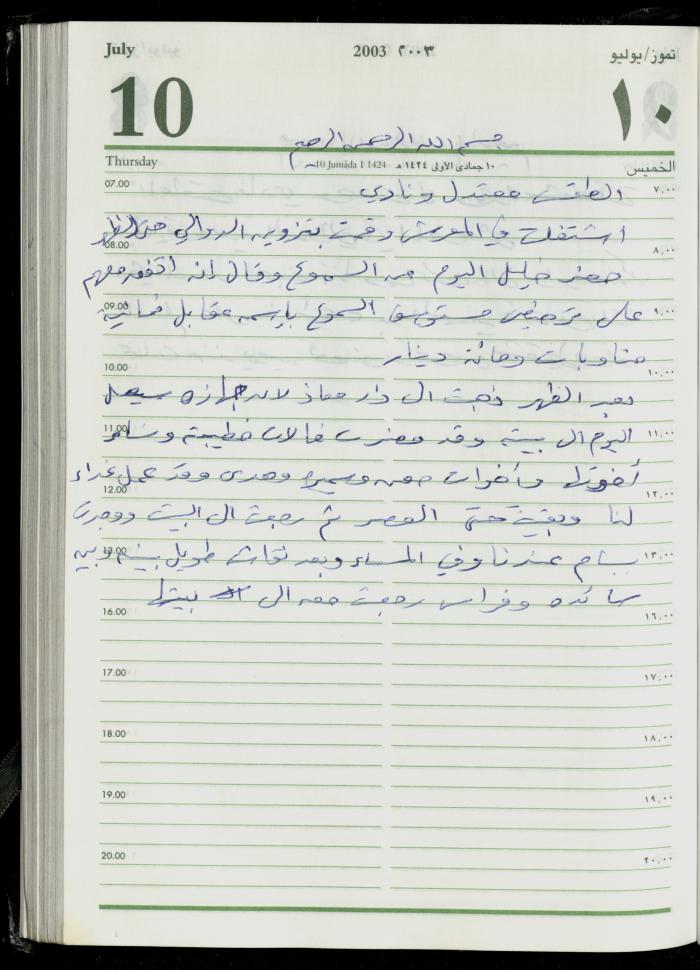 July 2003 ٢٠٠٣ تموز/يوليو
10 ١٠
بسم الله الرحمن الرحيم
Thursday 10 Jumāda I 1424 ١٠ جمادى الأولى ١٤٢٤ هـ الخميس
07.00 الطقس معتدل ونادي ٧,٠٠
اشتغلت في المعرش وقمت بتزوين الدوالي حتى الظهر
08.00 ٨,٠٠
حضر خليل اليوم من السموع وقال انه اتفق معهم
09.00 على ترخيص السموع باسمه مقابل ثمانية ٩,٠٠
ومائة دينار
10.00 ١٠,٠٠
بعد الظهر ذهبت الى دار معاذ لان
11.00 اليوم الى بيته وقد حضرت خطيبته ١١,٠٠
وأخوات وهدى وقد عمل غداء
12.00 ١٢,٠٠
لنا وبقيت حتى العصر ثم رجعت الى البيت ووجدت
13.00 بسام عندنا وفي المساء وبعد نقاش طويل بينه وبين ١٣,٠٠
سائده وفراس رجعت معه الى بيتها
16.00 ١٦,٠٠
17.00 ١٧,٠٠
18.00 ١٨,٠٠
19.00 ١٩,٠٠
20.00 ٢٠,٠٠